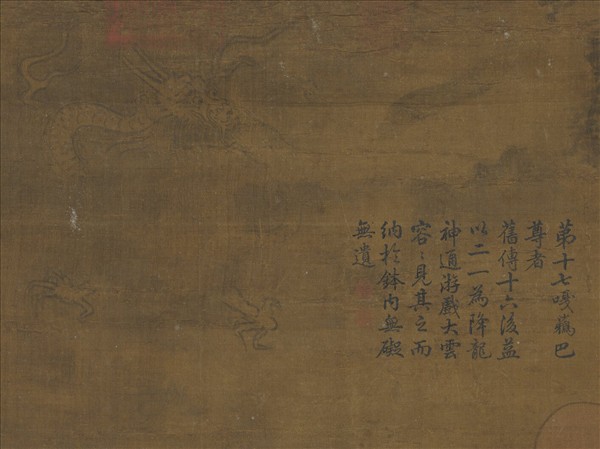 第十七嘎巴
尊者
舊傳十六後益
以二一為降龍
神通游戲大雲
容〻見其之而
納於鉢内無礙
無遺